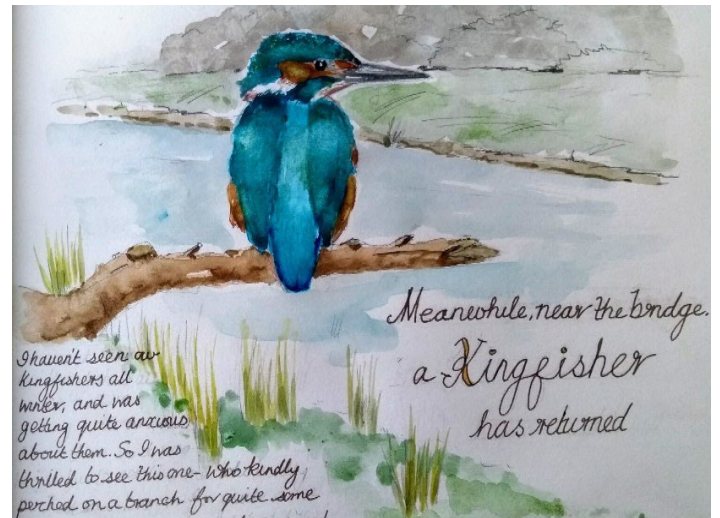 Meanwhile, near the bridge.
a Kingfisher
has returned
I haven't seen any
kingfishers all
winter, and was
getting quite anxious
about them. So I was
thrilled to see this one - who kindly
perched on a branch for quite some